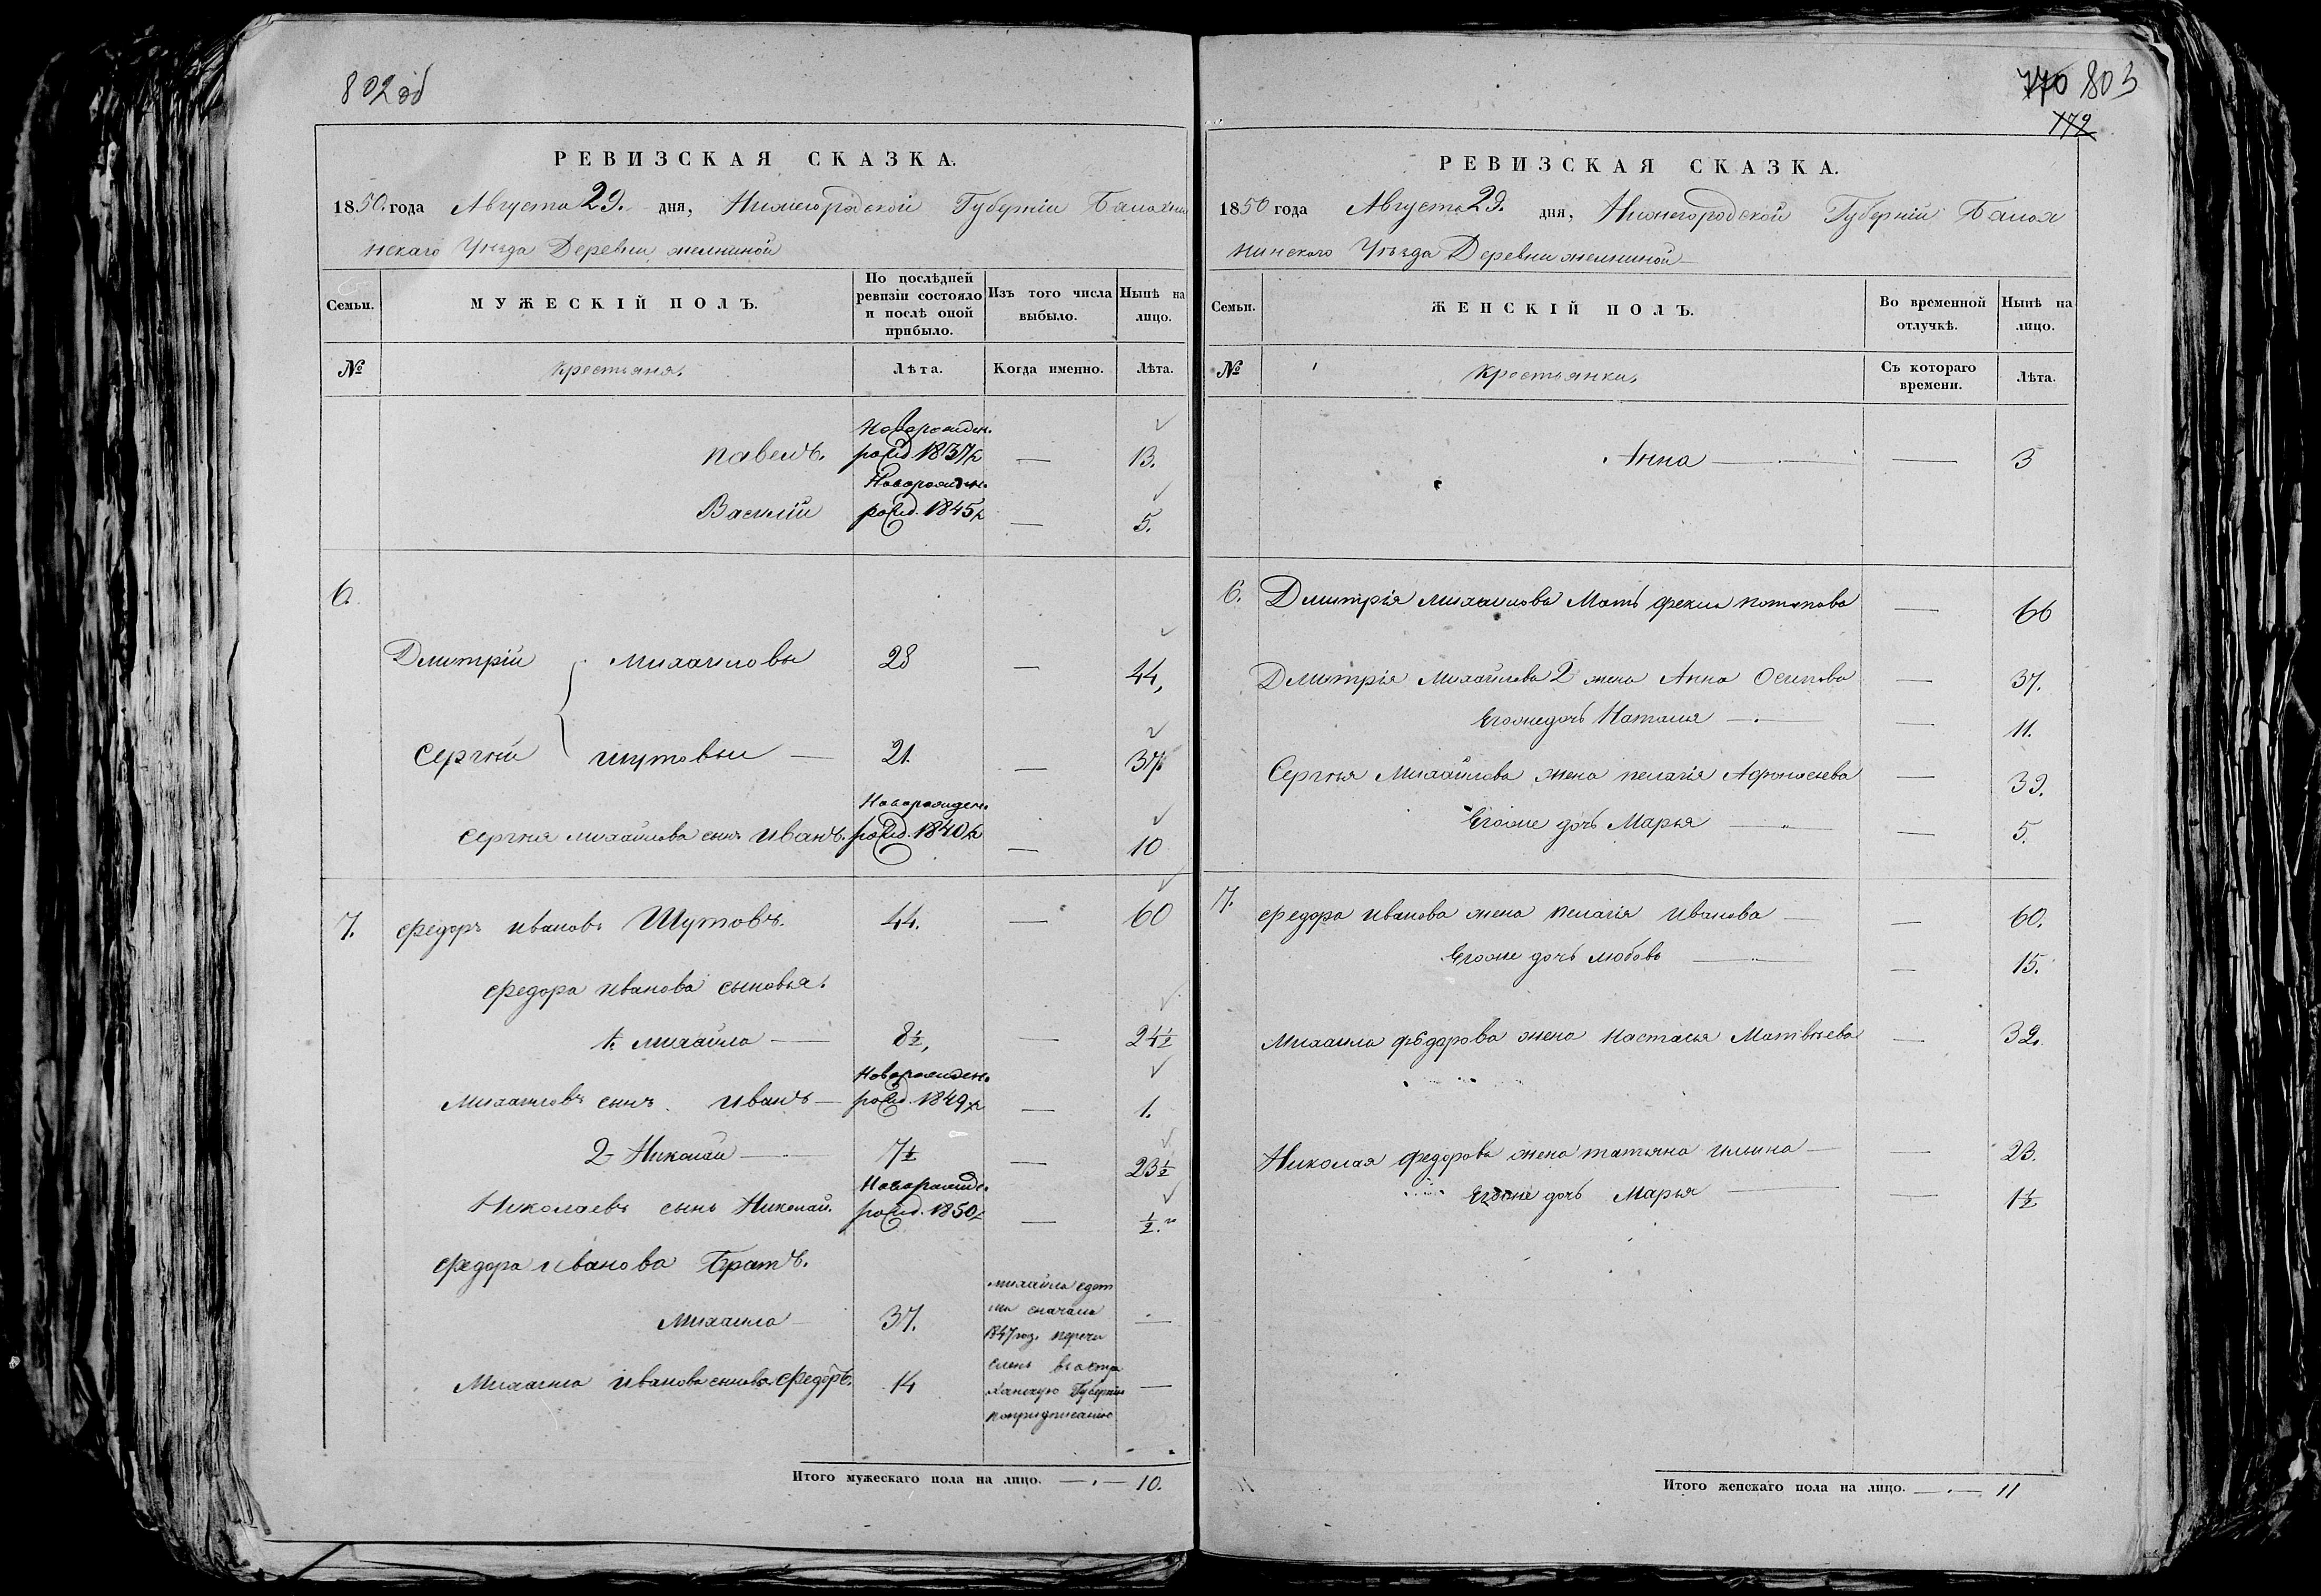 802 об
РЕВИЗСКАЯ СКАЗКА.
1850. года Августа 29. дня, Нижегородской Губерніи Балахни
нскаго Уѣзда Деревни желниной
Семьи.
МУЖЕСКІЙ ПОЛЪ.
По послѣдней ревизіи состояло и послѣ оной прибыло.
Изъ того числа выбыло.
Нынѣ на лицо.
№
крестьяня.
Лѣта.
Когда именно.
Лѣта.
Новорожден.
павелъ. рожд 1837г — 13.
Новорожден.
Василій рожд. 1845г — 5.
6.
Дмитрій Михаиловы 28 — 44,
Сергѣй шутовы — 21. — 37.
Новорожден.
Сергѣя михайлова сынъ иванъ. рожд. 1840г — 10
7. федоръ ивановъ Шутовъ. 44. — 60
федора иванова сыновья.
1. михайла — 8½, — 24½
Новорожден.
Михаиловъ сынъ иванъ — рожд. 1849г — 1.
2 Николай — 7½ — 23½
Новорожде.
Николаевъ сынъ Николай. рожд. 1850г — ½.
федора иванова Братъ.
Михаила 37. —
Михаила иванова сынъ федоръ. 14 —
михайла сдѣт
ми сначала
1847год. перечи
сленъ въ астра
ханскую Губернію
попредписанію
Итого мужескаго пола на лицо. — 10.
770 803
172
РЕВИЗСКАЯ СКАЗКА.
1850 года Августа 29. дня, Нижегородской Губерній Балах
нинскаго Уѣзда Деревни желниной
Семьи.
ЖЕНСКІЙ ПОЛЪ.
Во временной отлучкѣ.
Нынѣ на лицо.
№
крестьянки.
Съ котораго времени.
Лѣта.
Анна — — 3
6. Дмитрія михаилова Мать фекла потапова — 66
Дмитрія Михайлова 2 жена Анна Осипова — 37.
Егоже дочь Наталья — — 11.
Сергѣя Михайлова жена пелагія Афонасьева — 39.
Егоже дочь Марья — — 5.
7. федора иванова жена пелагія иванова — — 60.
Егоже дочь любовь — — 15.
Михаила фёдорова жена настасья Матвѣева — 32.
Николая федорова жена татьяна ильина — — 23.
Егоже дочь Марья — — 1½
Итого женскаго пола на лицо. — 11